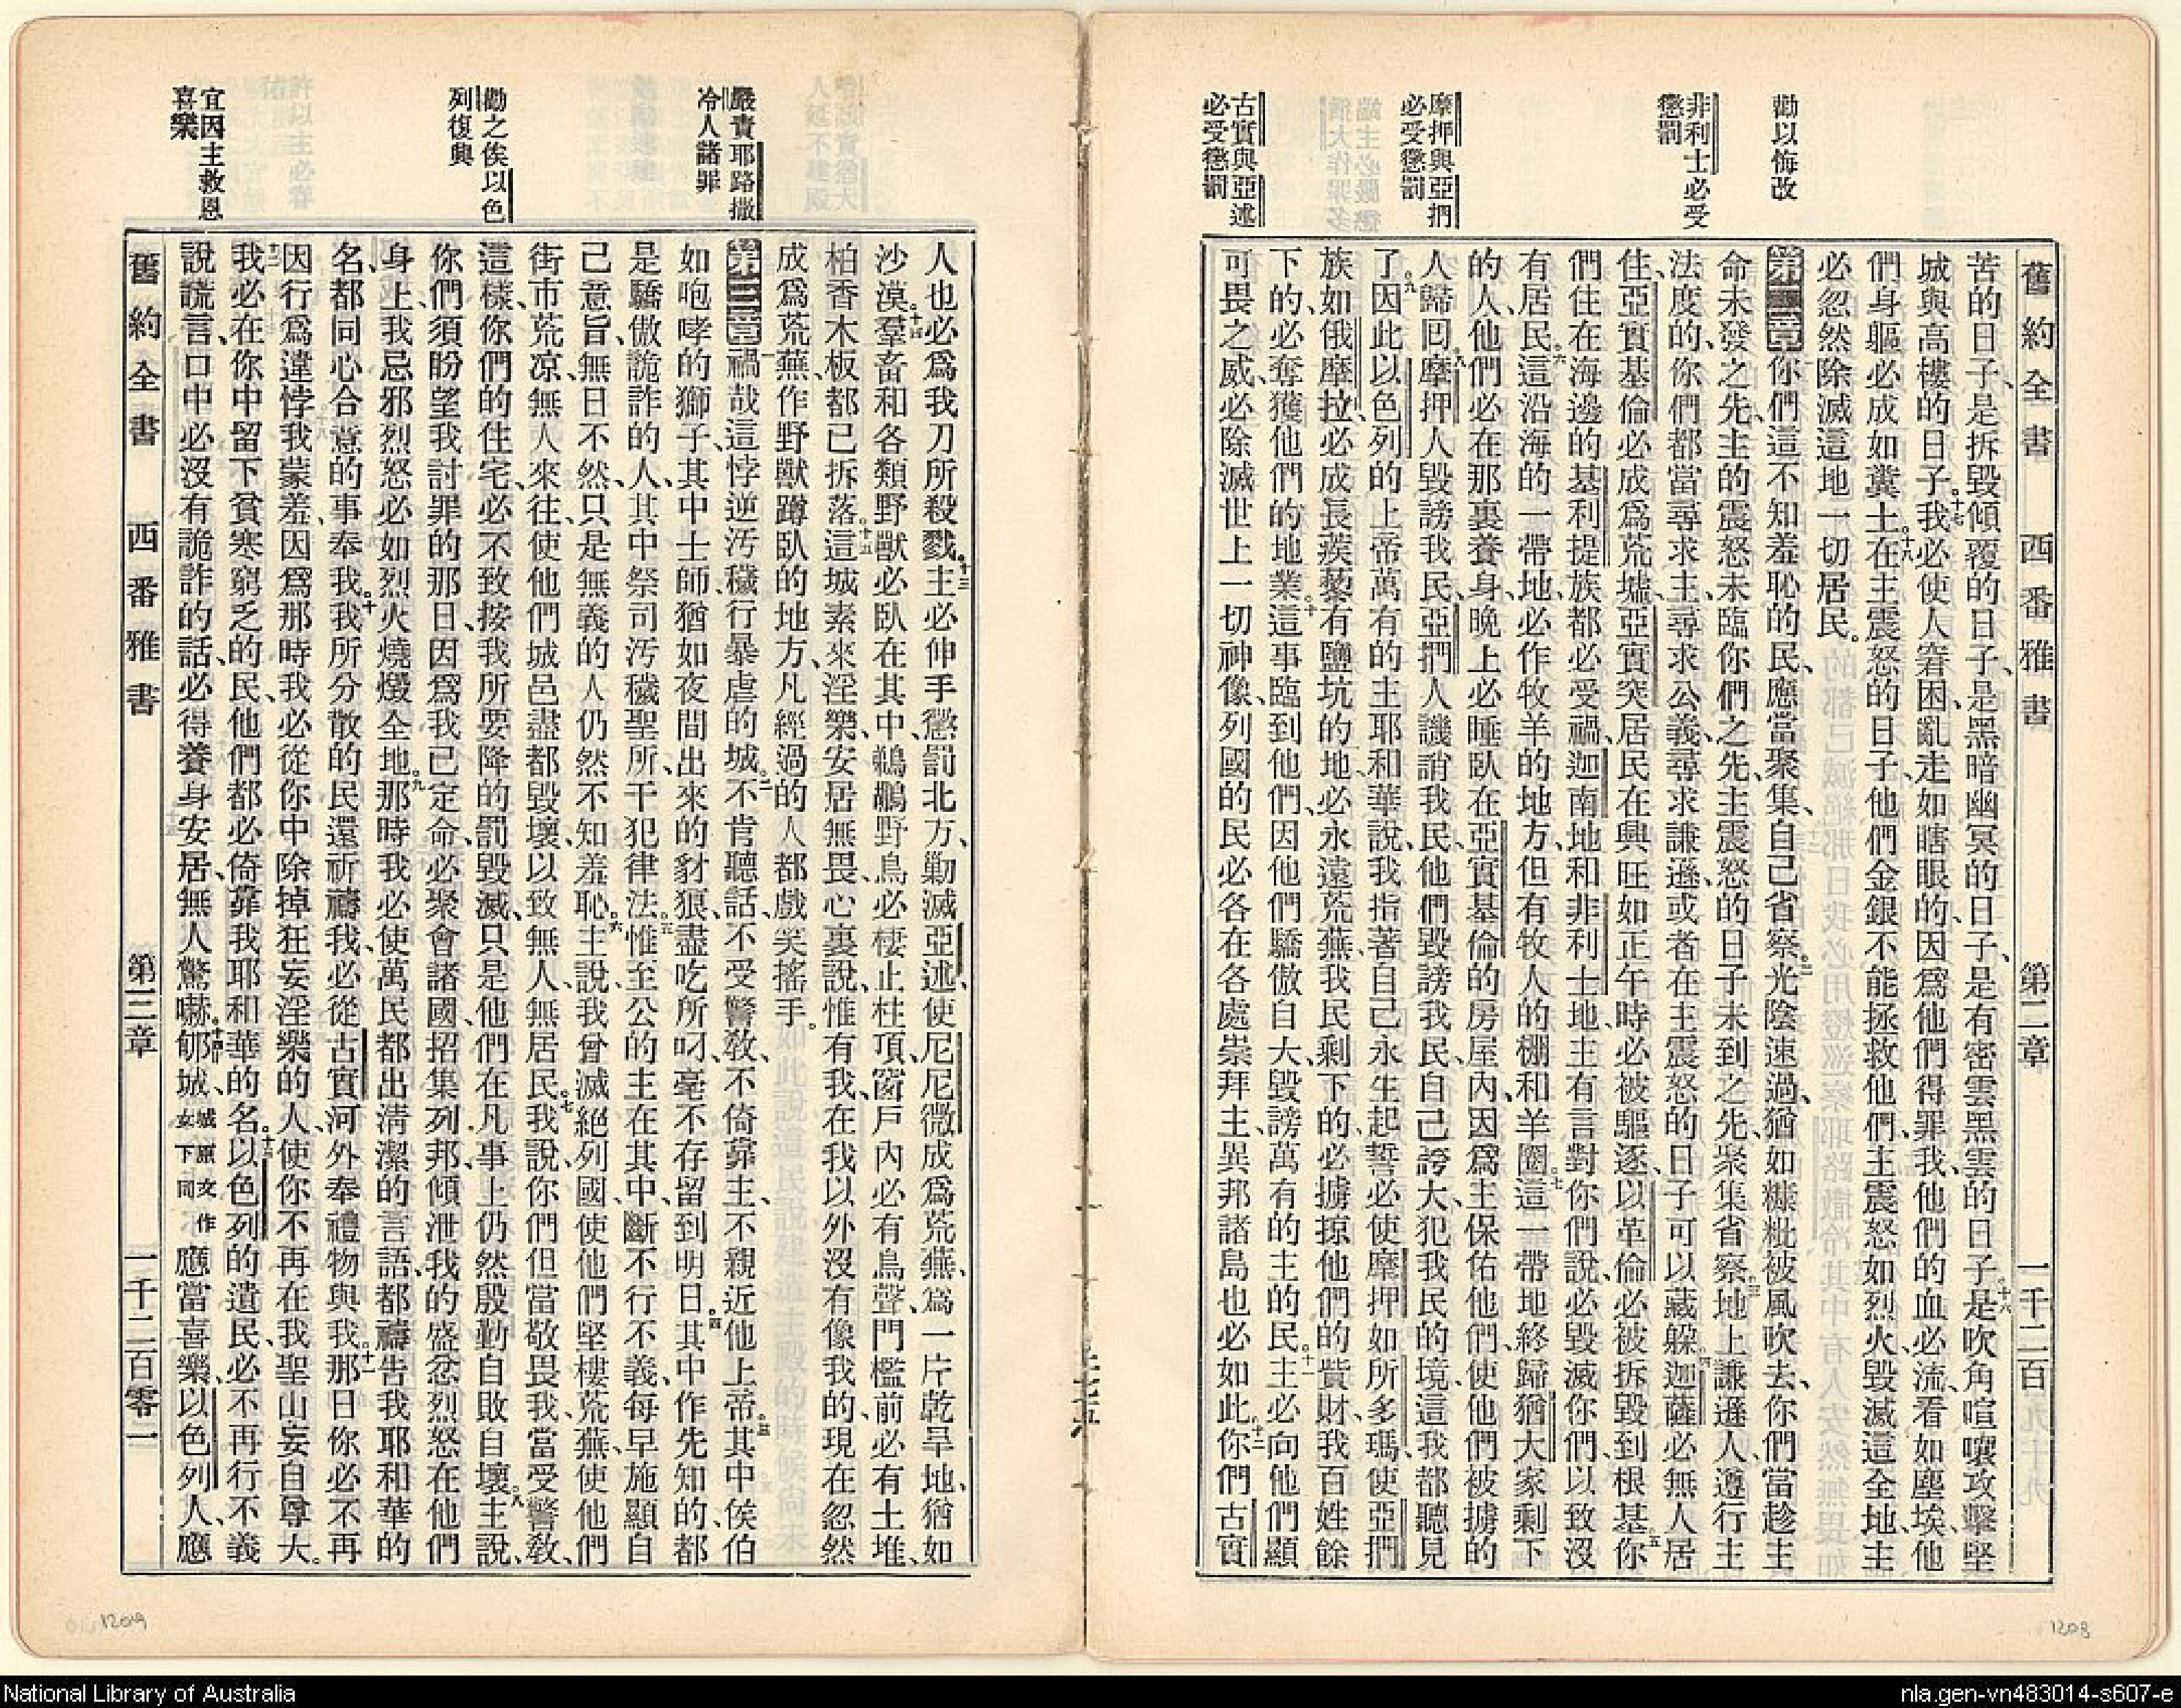 舊約全書 西番雅書 第二章 一千二百
勸以悔改
非利士必受
懲罰
摩押與亞捫
必受懲罰
古實與亞述
必受懲罰
苦的日子、是拆毀傾覆的日子、是黑暗幽冥的日子、是有密雲黑雲的日子、十六是吹角喧嚷攻擊堅
城與高樓的日子。十七我必使人窘困、亂走如瞎眼的、因爲他們得罪我、他們的血必流、看如塵埃、他
們身軀必成如糞土。十八在主震怒的日子、他們金銀不能拯救他們、主震怒如烈火毀滅這全地、主
必忽然除滅這地一切居民。
第二章一你們這不知羞恥的民、應當聚集、自己省察。二光陰速過、猶如糠粃被風吹去、你們當趁主
命未發之先、主的震怒未臨你們之先、主震怒的日子未到之先、聚集省察。三地上謙遜人、遵行主
法度的、你們都當尋求主、尋求公義、尋求謙遜、或者在主震怒的日子可以藏躲。四迦薩必無人居
住、亞實基倫必成爲荒墟、亞實突居民在興旺如正午時必被驅逐、以革倫必被拆毀到根基。五你
們住在海邊的基利提族都必受禍、迦南地和非利士地、主有言對你們說、必毀滅你們、以致沒
有居民。六這沿海的一帶地、必作牧羊的地方、但有牧人的棚和羊圈。七這一帶地終歸猶大家剩下
的人、他們必在那裏養身、晚上必睡臥在亞實基倫的房屋內、因爲主保佑他們、使他們被擄的
人歸回。八摩押人毀謗我民、亞捫人譏誚我民、他們毀謗我民、自己誇大、犯我民的境、這我都聽見
了。九因此以色列的上帝萬有的主耶和華說、我指著自己永生起誓、必使摩押如所多瑪、使亞捫
族如俄摩拉、必成長蒺藜有鹽坑的地、必永遠荒蕪、我民剩下的、必擄掠他們的貲財、我百姓餘
下的、必奪獲他們的地業。十這事臨到他們、因他們驕傲自大、毀謗萬有的主的民。十一主必向他們顯
可畏之威、必除滅世上一切神像、列國的民必各在各處崇拜主、異邦諸島也必如此。十二你們古實
嚴責耶路撒
冷人諸罪
勸之俟以色
列復興
宜因主救恩
喜樂
人也必爲我刀所殺戮。十三主必伸手懲罰北方、勦滅亞述、使尼尼微成爲荒蕪、爲一片乾旱地、猶如
沙漠。十四羣畜和各類野獸必臥在其中、鵜鶘野鳥必棲止柱頂、窗戶內必有鳥聲、門檻前必有土堆、
柏香木板都已拆落。十五這城素來淫樂、安居無畏、心裏說、惟有我、在我以外沒有像我的、現在忽然
成爲荒蕪、作野獸蹲臥的地方、凡經過的人都戲笑搖手。
第三章一禍哉這悖逆污穢行暴虐的城。二不肯聽話、不受警敎、不倚靠主、不親近他上帝。三其中侯伯
如咆哮的獅子、其中士師、猶如夜間出來的豺狼、盡吃所叼、毫不存留到明日。四其中作先知的都
是驕傲詭詐的人、其中祭司污穢聖所、干犯律法。五惟至公的主在其中、斷不行不義、每早施顯自
己意旨、無日不然、只是無義的人仍然不知羞恥。六主說、我曾滅絕列國、使他們堅樓荒蕪、使他們
街市荒涼、無人來往、使他們城邑盡都毀壞、以致無人無居民。七我說、你們但當敬畏我、當受警敎、
這樣、你們的住宅、必不致按我所要降的罰毀滅、只是他們在凡事上仍然殷勤自敗自壞。八主說、
你們須盼望我討罪的那日、因爲我已定命、必聚會諸國、招集列邦、傾泄我的盛忿烈怒在他們
身上、我忌邪烈怒必如烈火燒燬全地。九那時我必使萬民都出淸潔的言語、都禱告我耶和華的
名、都同心合意的事奉我。十我所分散的民、還祈禱我、必從古實河外奉禮物與我。十一那日你必不再
因行爲違悖我蒙羞、因爲那時我必從你中除掉狂妄淫樂的人、使你不再在我聖山妄自尊大。
十二我必在你中留下貧寒窮乏的民、他們都必倚靠我耶和華的名。十三以色列的遺民、必不再行不義
說謊言、口中必沒有詭詐的話、必得養身安居、無人驚嚇。十四郇城、城原文作女下同應當喜樂、以色列人、應
舊約全書 西番雅書 第三章 一千二百零一
1208
1209
National Library of Australia
nla.gen-vn483014-s607-e